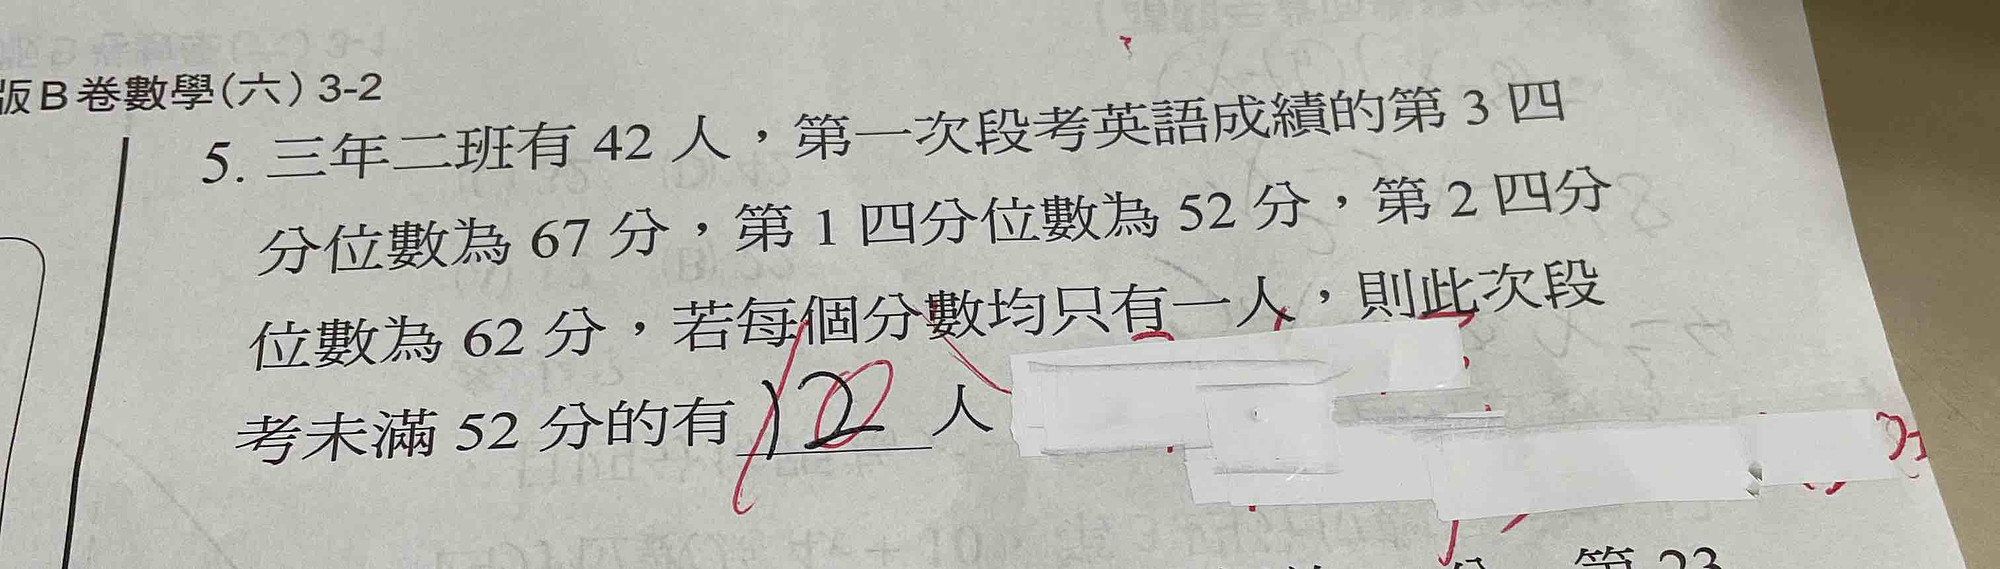 版B卷數學(六) 3-2
5. 三年二班有 42 人，第一次段考英語成績的第 3 四
分位數為 67 分，第 1 四分位數為 52 分，第 2 四分
位數為 62 分，若每個分數均只有一人，則此次段
考未滿 52 分的有 12 人
第 23